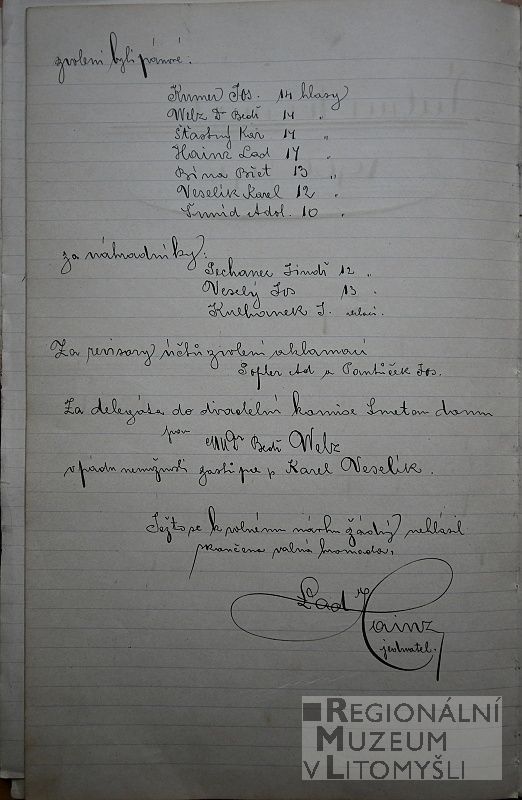 zvoleni byli pánové.
Kumer Jos. 14 hlasy
Welz Dr Bedř 14 "
Šťastný Kar 14 "
Hainz Lad 14 "
Bína Břet 13 "
Veselík Karel 12 "
Šmíd Adol. 10 "
za náhradníky:
Pechanec Jindř 12 "
Veselý Jos 13 "
Kulhanek J.
Za revisory účtů zvoleni aklamací
Šofler Ad a Pantůček Jos.
Za delegáta do divadelní komise Smetan domu
pan MUDr Bedř Welz
v pádu nemožnosti zastupuje p Karel Veselík.
Ježto se k volnému návrhu žádný nehlásil
skončena valná hromada.
Lad Hainz
jednatel.
REGIONÁLNÍ
MUZEUM
V LITOMYŠLI